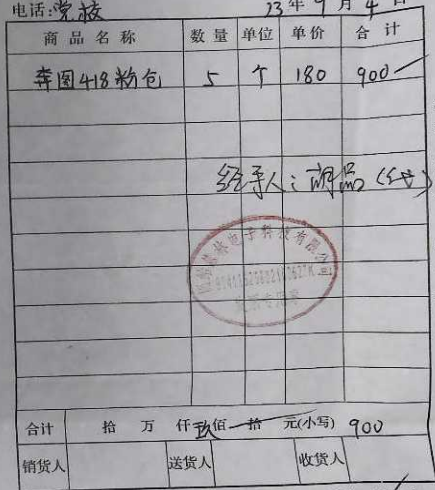 电话:党校 23年9月4日
商品名称 数量 单位 单价 合计
奔图418粉包 5 个 180 900
经手人:胡品(代)
电子科技有限公司
发票专用章
合计 拾 万 仟 玖佰 拾 元(小写) 900
销货人 送货人 收货人